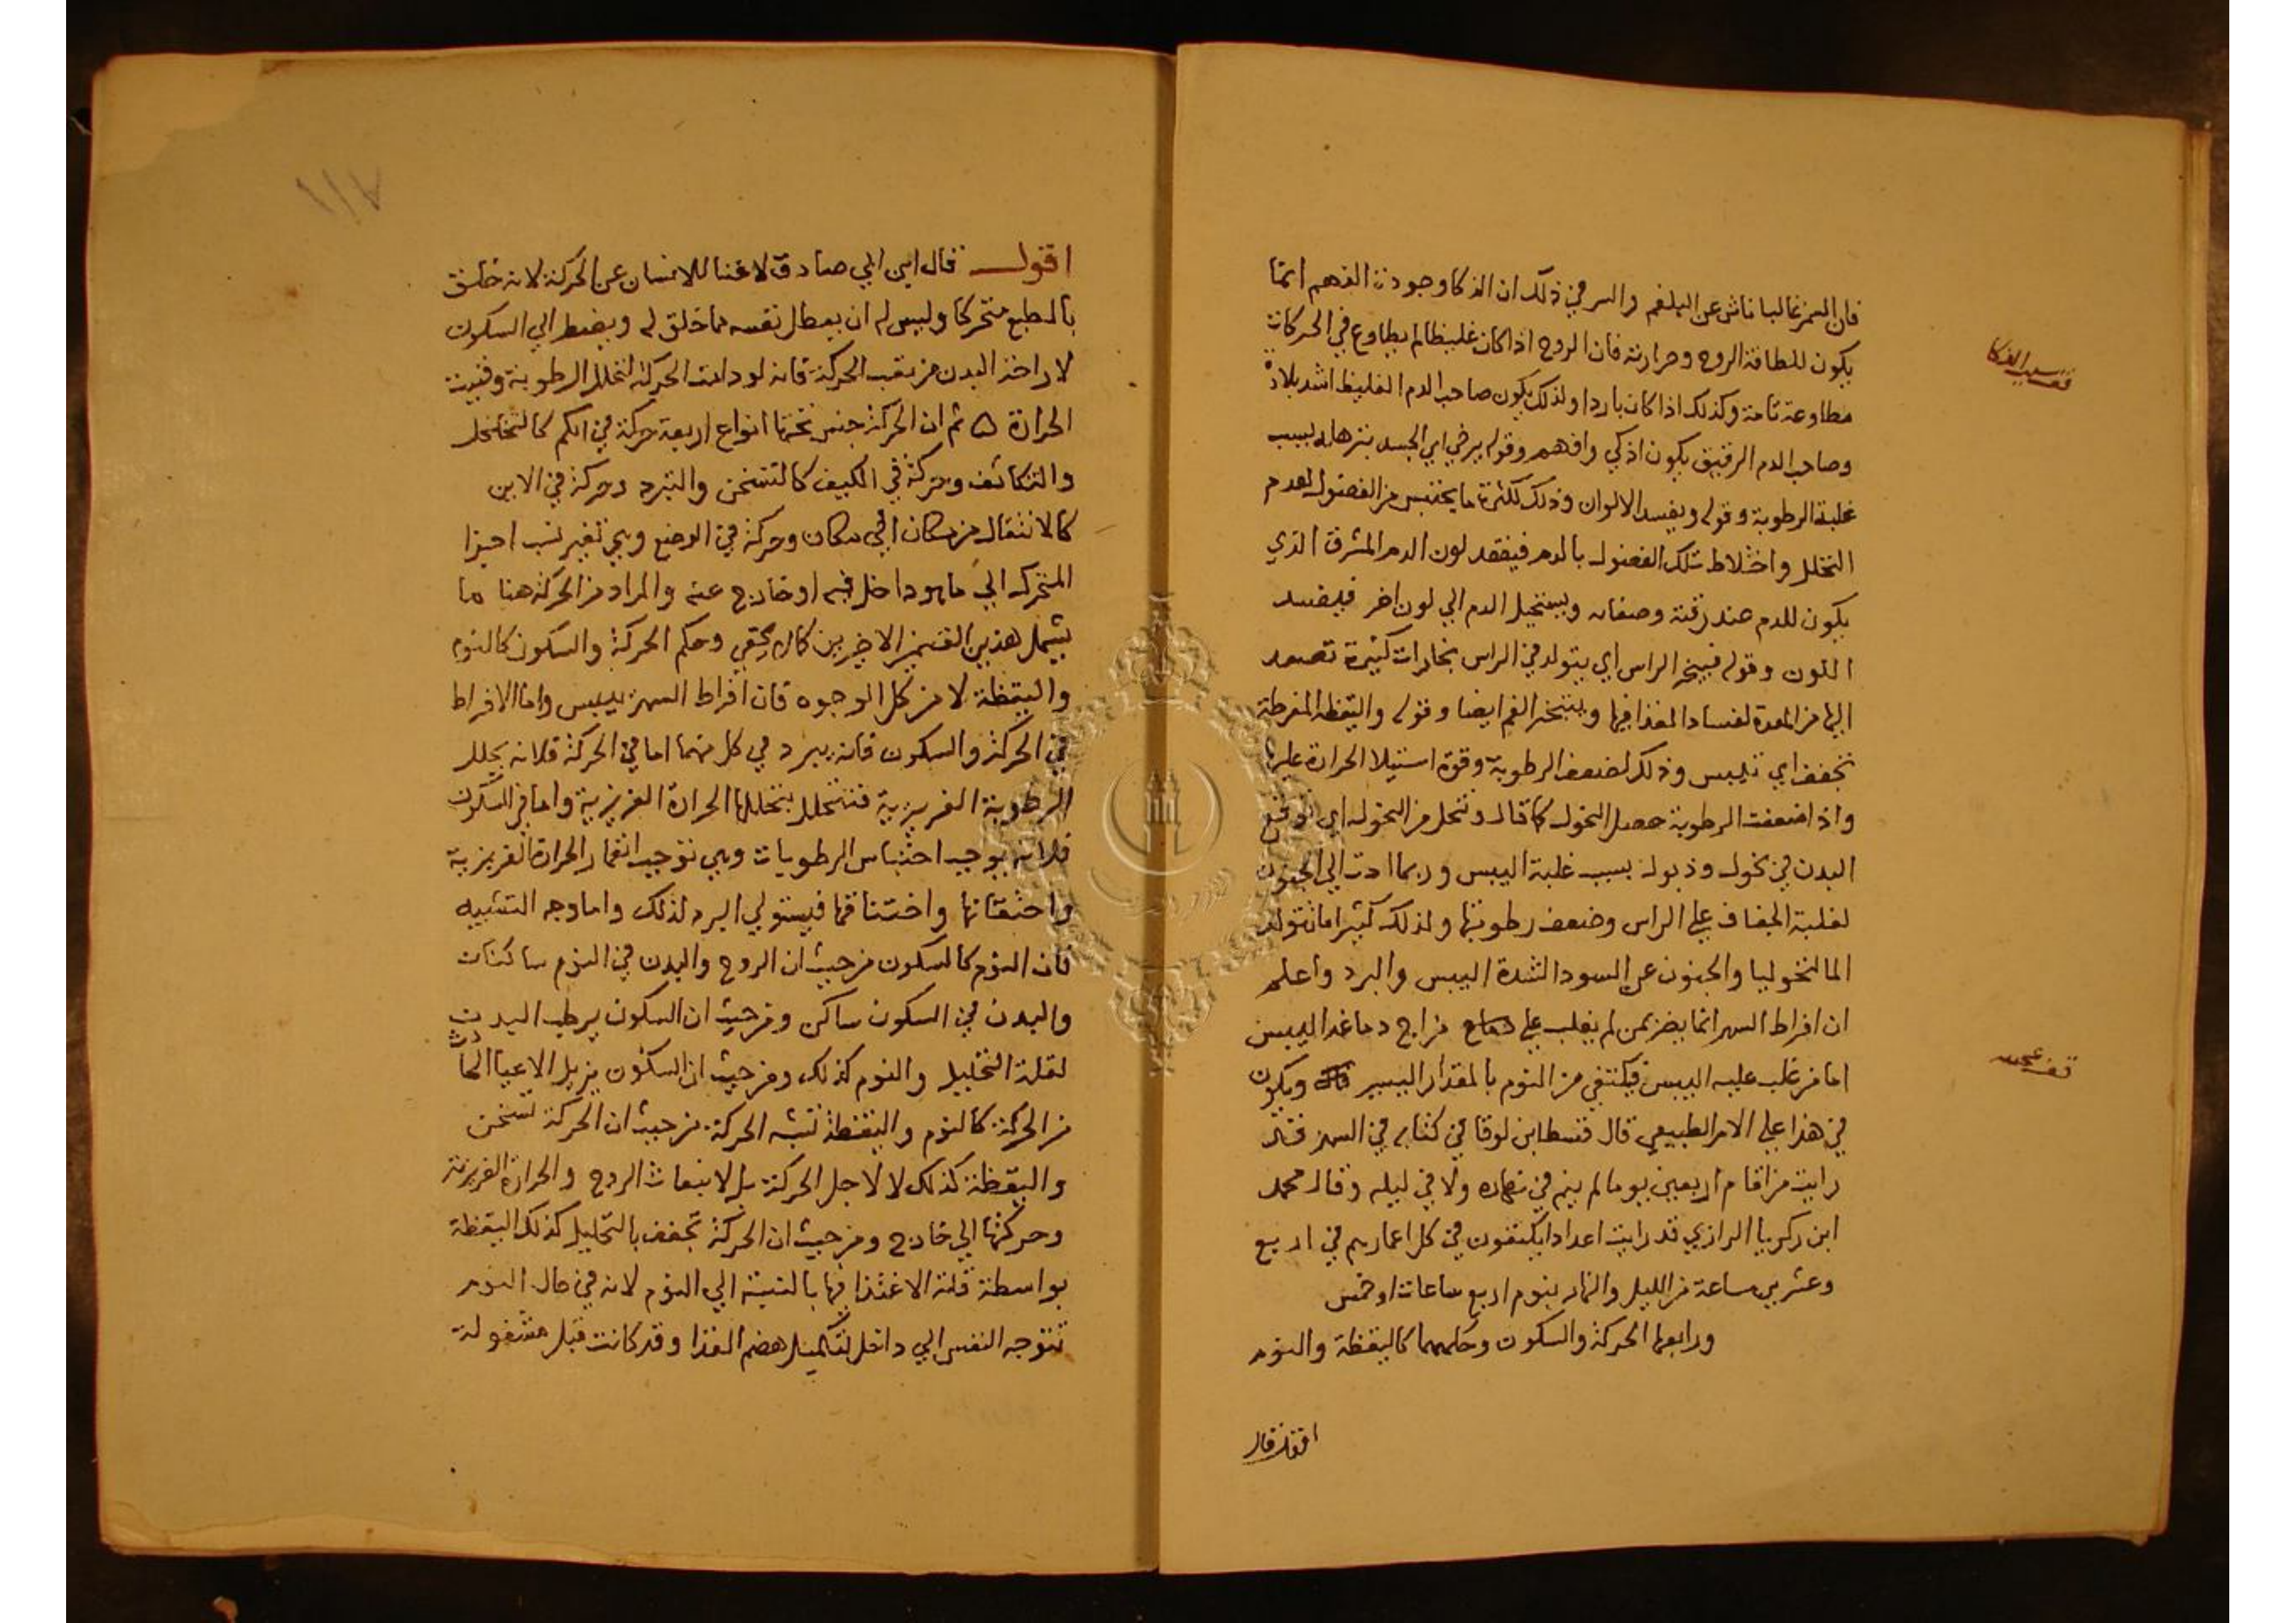 فان السمن غالبا ناش عن البلغم والسر في ذلك ان الذكا وجودة الفهم انما
يكون للطافة الروح وحرارته فان الروح اذا كان غليظا لم يطاوع في الحركات
مطاوعة تامة وكذلك اذا كان باردا ولذلك يكون صاحب الدم الغليظ اشد بلادة
وصاحب الدم الرقيق يكون اذكي وافهم وقوله يرخي اي الجسد بترهله بسبب
غلبة الرطوبة وقوله ويفسد الالوان وذلك لكثرة ما يحتبس من الفضول لعدم
التحلل واختلاط تلك الفضول بالدم فيفقد لون الدم المشرق الذي
يكون للدم عند رقته وصفائه ويستحيل الدم الي لون اخر فيفسد
اللون وقوله فيبخر الراس اي يتولد في الراس بخارات كثيرة تصعد
اليها من المعدة لفساد الغذا فيها ويتبخر الفم ايضا وقوله واليقظة المفرطة
تجفف اي تيبس وذلك لضعف الرطوبة وقوة استيلا الحرارة عليها
واذا ضعفت الرطوبة حصل النحول كما قال وتنحل من النحول اي توقع
البدن في نحول وذبول بسبب غلبة اليبس وربما ادت الي الجنون
لغلبة الجفاف علي الراس وضعف رطوبتها ولذلك كثيرا ما تتولد
المالنخوليا والجنون عن السودا لشدة اليبس والبرد واعلم
ان افراط السهر انما يضر بمن لم يغلب علي مزاج دماغه اليبس
اما من غلب عليه اليبس فيكتفي من النوم بالمقدار اليسير ويكون
في هذا علي الامر الطبيعي قال قسطا ابن لوقا في كتابه في السهر قد
رايت من اقام اربعين يوما لم ينم في نهاره ولا في ليله وقال محمد
ابن زكريا الرازي قد رايت اعدادا يكتفون في كل اعمارهم في اربع
وعشرين ساعة من الليل والنهار بنوم اربع ساعات او خمس
ورابعها الحركة والسكون وحكمهما كاليقظة والنوم
قف سبب الذكا
قف عجيب
اقول قال
١١٧
اقول قال ابن ابي صادق لا غنا للانسان عن الحركة لانه خلق
بالطبع متحركا وليس له ان يعطل نفسه مما خلق له ويضطر الي السكون
لاراحة البدن من تعب الحركة فانه لو دامت الحركة لتحلل الرطوبة وفنيت
الحرارة ثم ان الحركة جنس تحتها انواع اربعة حركة في الكم كالتخلخل
والتكاثف وحركة في الكيف كالتسخن والتبرد وحركة في الاين
كالانتقال من مكان الي مكان وحركة في الوضع وهي تغير نسب اجزا
المتحرك الي ما هو داخل فيه او خارج عنه والمراد من الحركة هنا ما
يشمل هذين القسمين الاخيرين كما لا يخفي وحكم الحركة والسكون كالنوم
واليقظة لا من كل الوجوه فان افراط السهر ييبس واما الافراط
في الحركة والسكون فانه يبرد في كل منهما اما في الحركة فلانه يحلل
الرطوبة الغريزية فتتحلل بتحللها الحرارة الغريزية واما في السكون
فلانه يوجب احتباس الرطوبات وهي توجب انغمار الحرارة الغريزية
واحتقانها واختناقها فيستولي البرد لذلك واما وجه التشبيه
فان النوم كالسكون من حيث ان الروح والبدن في النوم ساكنان
والبدن في السكون ساكن ومن حيث ان السكون يرطب البدن
لقلة التحليل والنوم كذلك ومن حيث ان السكون يزيل الاعيا الحادث
من الحركة كالنوم واليقظة تشبه الحركة من حيث ان الحركة تسخن
واليقظة كذلك لا لاجل الحركة بل لانبعاث الروح والحرارة الغريزية
وحركتها الي خارج ومن حيث ان الحركة تجفف بالتحليل كذلك اليقظة
بواسطة قلة الاغتذا فيها بالنسبة الي النوم لانه في حال النوم
تتوجه النفس الي داخل لتكميل هضم الغذا وقد كانت قبل مشغولة